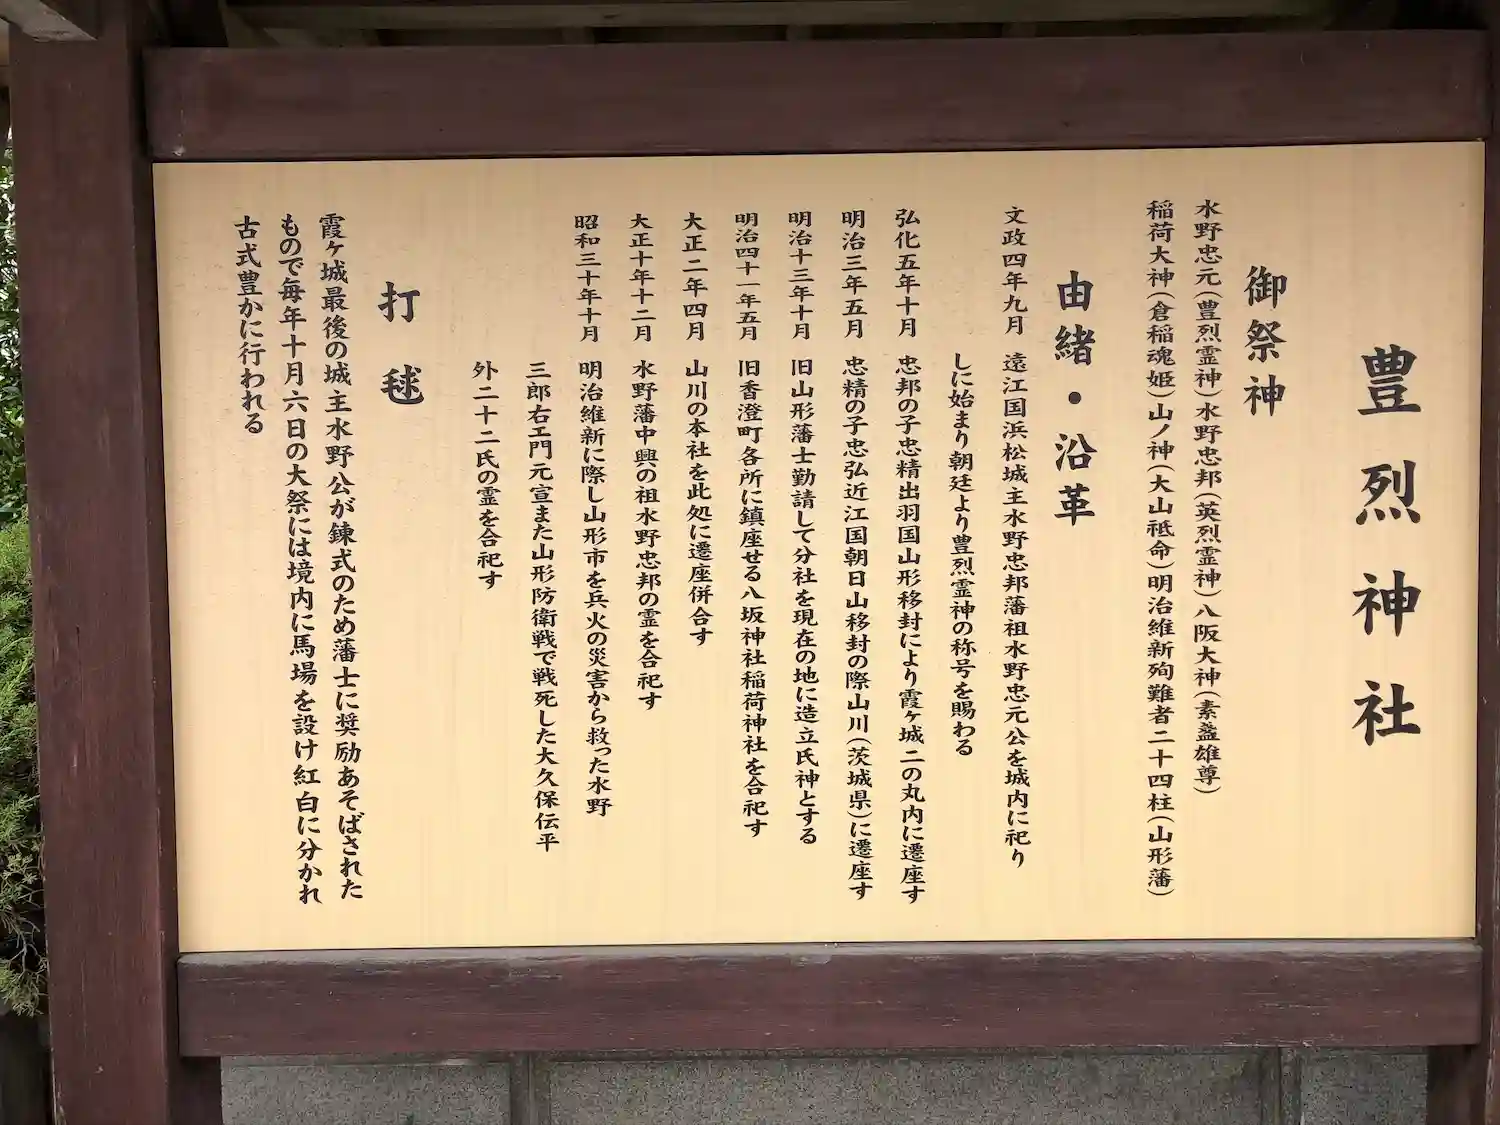 豊烈神社
御祭神
水野忠元(豊烈霊神)水野忠邦(英烈霊神)八阪大神(素盞雄尊)
稲荷大神(倉稲魂姫)山ノ神(大山祗命)明治維新殉難者二十四柱(山形藩)
由緒・沿革
文政四年九月 遠江国浜松城主水野忠邦藩祖水野忠元公を城内に祀り
しに始まり朝廷より豊烈霊神の称号を賜わる
弘化五年十月 忠邦の子忠精出羽国山形移封により霞ヶ城二の丸内に遷座す
明治三年五月 忠精の子忠弘近江国朝日山移封の際山川(茨城県)に遷座す
明治十三年十月 旧山形藩士勤請して分社を現在の地に造立氏神とする
明治四十一年五月 旧香澄町各所に鎮座せる八坂神社稲荷神社を合祀す
大正二年四月 山川の本社を此処に遷座併合す
大正十年十二月 水野藩中興の祖水野忠邦の霊を合祀す
昭和三十年十月 明治維新に際し山形市を兵火の災害から救った水野
三郎右エ門元宣また山形防衛戦で戦死した大久保伝平
外二十二氏の霊を合祀す
打毬
霞ヶ城最後の城主水野公が錬式のため藩士に奨励あそばされた
もので毎年十月六日の大祭には境内に馬場を設け紅白に分かれ
古式豊かに行われる